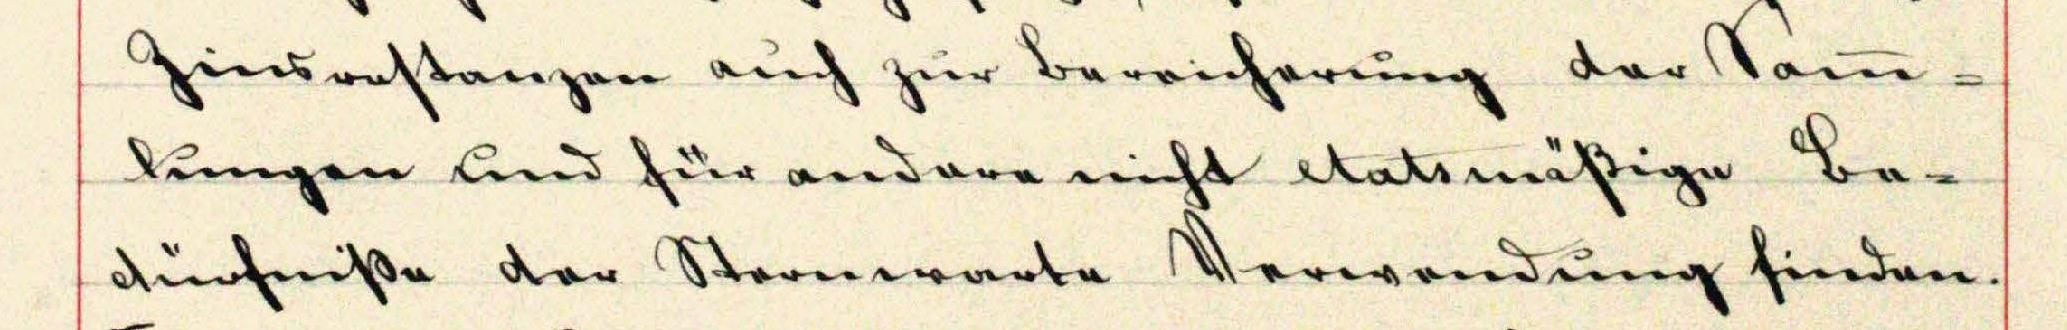 Zinsrestanzen auch zur Bereicherung der Sam̅-
lungen und für andere nicht etatsmäßige Be-
dürfniße der Sternwarte Verwendung finden.